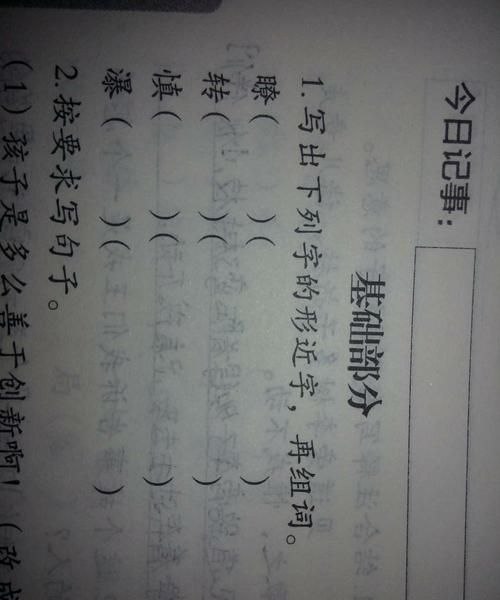 今日记事：
基础部分
1.写出下列字的形近字，再组词。
瞭（ ）（ ）
转（ ）（ ）
慎（ ）（ ）
瀑（ ）（ ）
2.按要求写句子。
（1）孩子是多么善于创新啊！（改成